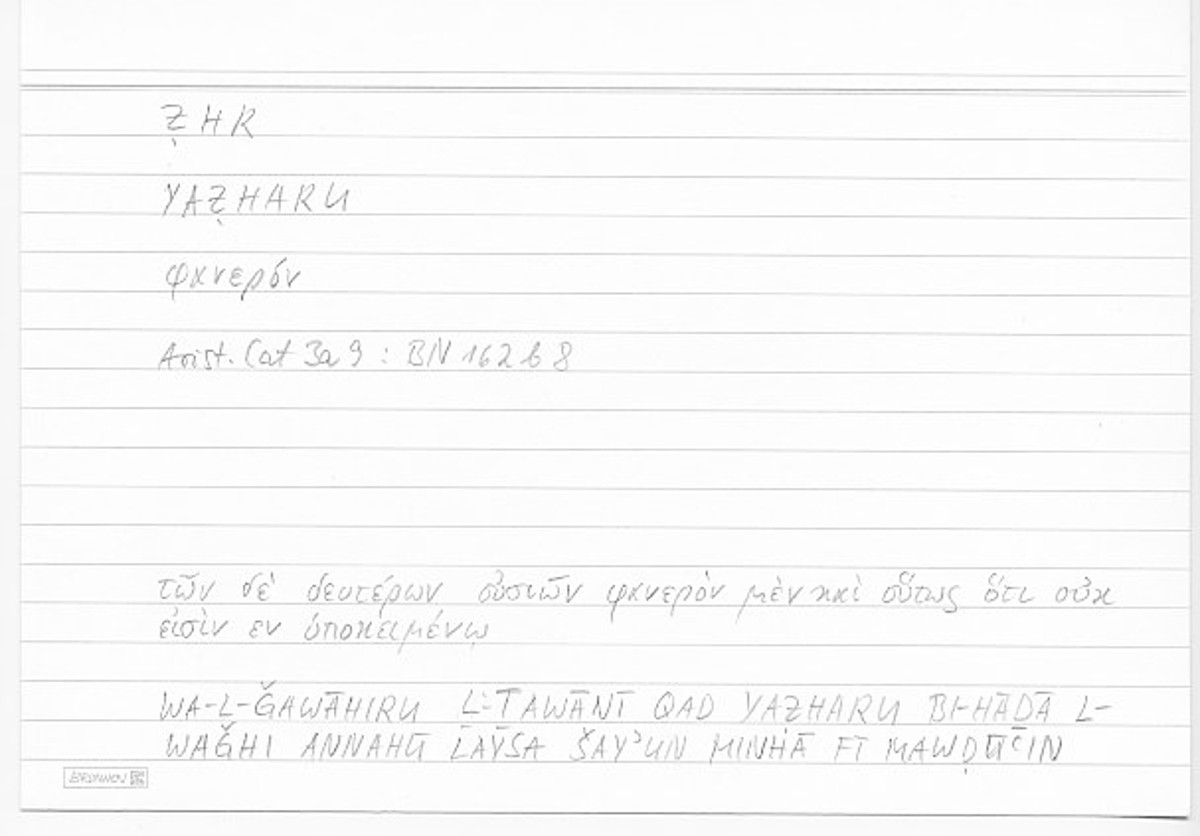 ẒHR
YAẒHARU
φανερόν
Arist. Cat 3a9 : BN 162b8
τῶν δὲ δευτέρων οὐσιῶν φανερὸν μὲν καὶ οὕτως ὅτι οὐκ
εἰσὶν εν ὑποκειμένῳ
WA-L-ǦAWĀHIRU L-ṮAWĀNĪ QAD YAẒHARU BI-HĀḎĀ L-
WAǦHI ANNAHŪ LAYSA ŠAYʾUN MINHĀ FĪ MAWḌŪʿIN
BRUNNEN